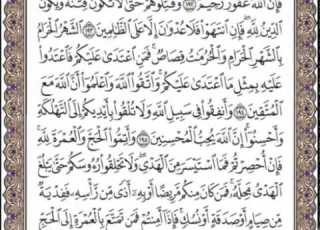 فَإِنَّ ٱللَّهَ غَفُورٌ رَّحِيمٌ ١٩٢ وَقَٰتِلُوهُمْ حَتَّىٰ لَا تَكُونَ فِتْنَةٌ وَيَكُونَ
ٱلدِّينُ لِلَّهِ فَإِنِ ٱنتَهَوْا۟ فَلَا عُدْوَٰنَ إِلَّا عَلَى ٱلظَّٰلِمِينَ ١٩٣ ٱلشَّهْرُ ٱلْحَرَامُ
بِٱلشَّهْرِ ٱلْحَرَامِ وَٱلْحُرُمَٰتُ قِصَاصٌ فَمَنِ ٱعْتَدَىٰ عَلَيْكُمْ فَٱعْتَدُوا۟
عَلَيْهِ بِمِثْلِ مَا ٱعْتَدَىٰ عَلَيْكُمْ وَٱتَّقُوا۟ ٱللَّهَ وَٱعْلَمُوٓا۟ أَنَّ ٱللَّهَ مَعَ
ٱلْمُتَّقِينَ ١٩٤ وَأَنفِقُوا۟ فِى سَبِيلِ ٱللَّهِ وَلَا تُلْقُوا۟ بِأَيْدِيكُمْ إِلَى ٱلتَّهْلُكَةِ
وَأَحْسِنُوٓا۟ إِنَّ ٱللَّهَ يُحِبُّ ٱلْمُحْسِنِينَ ١٩٥ وَأَتِمُّوا۟ ٱلْحَجَّ وَٱلْعُمْرَةَ لِلَّهِ
فَإِنْ أُحْصِرْتُمْ فَمَا ٱسْتَيْسَرَ مِنَ ٱلْهَدْىِ وَلَا تَحْلِقُوا۟ رُءُوسَكُمْ حَتَّىٰ يَبْلُغَ
ٱلْهَدْىُ مَحِلَّهُۥ فَمَن كَانَ مِنكُم مَّرِيضًا أَوْ بِهِۦٓ أَذًى مِّن رَّأْسِهِۦ فَفِدْيَةٌ
مِّن صِيَامٍ أَوْ صَدَقَةٍ أَوْ نُسُكٍ فَإِذَآ أَمِنتُمْ فَمَن تَمَتَّعَ بِٱلْعُمْرَةِ إِلَى ٱلْحَجِّ